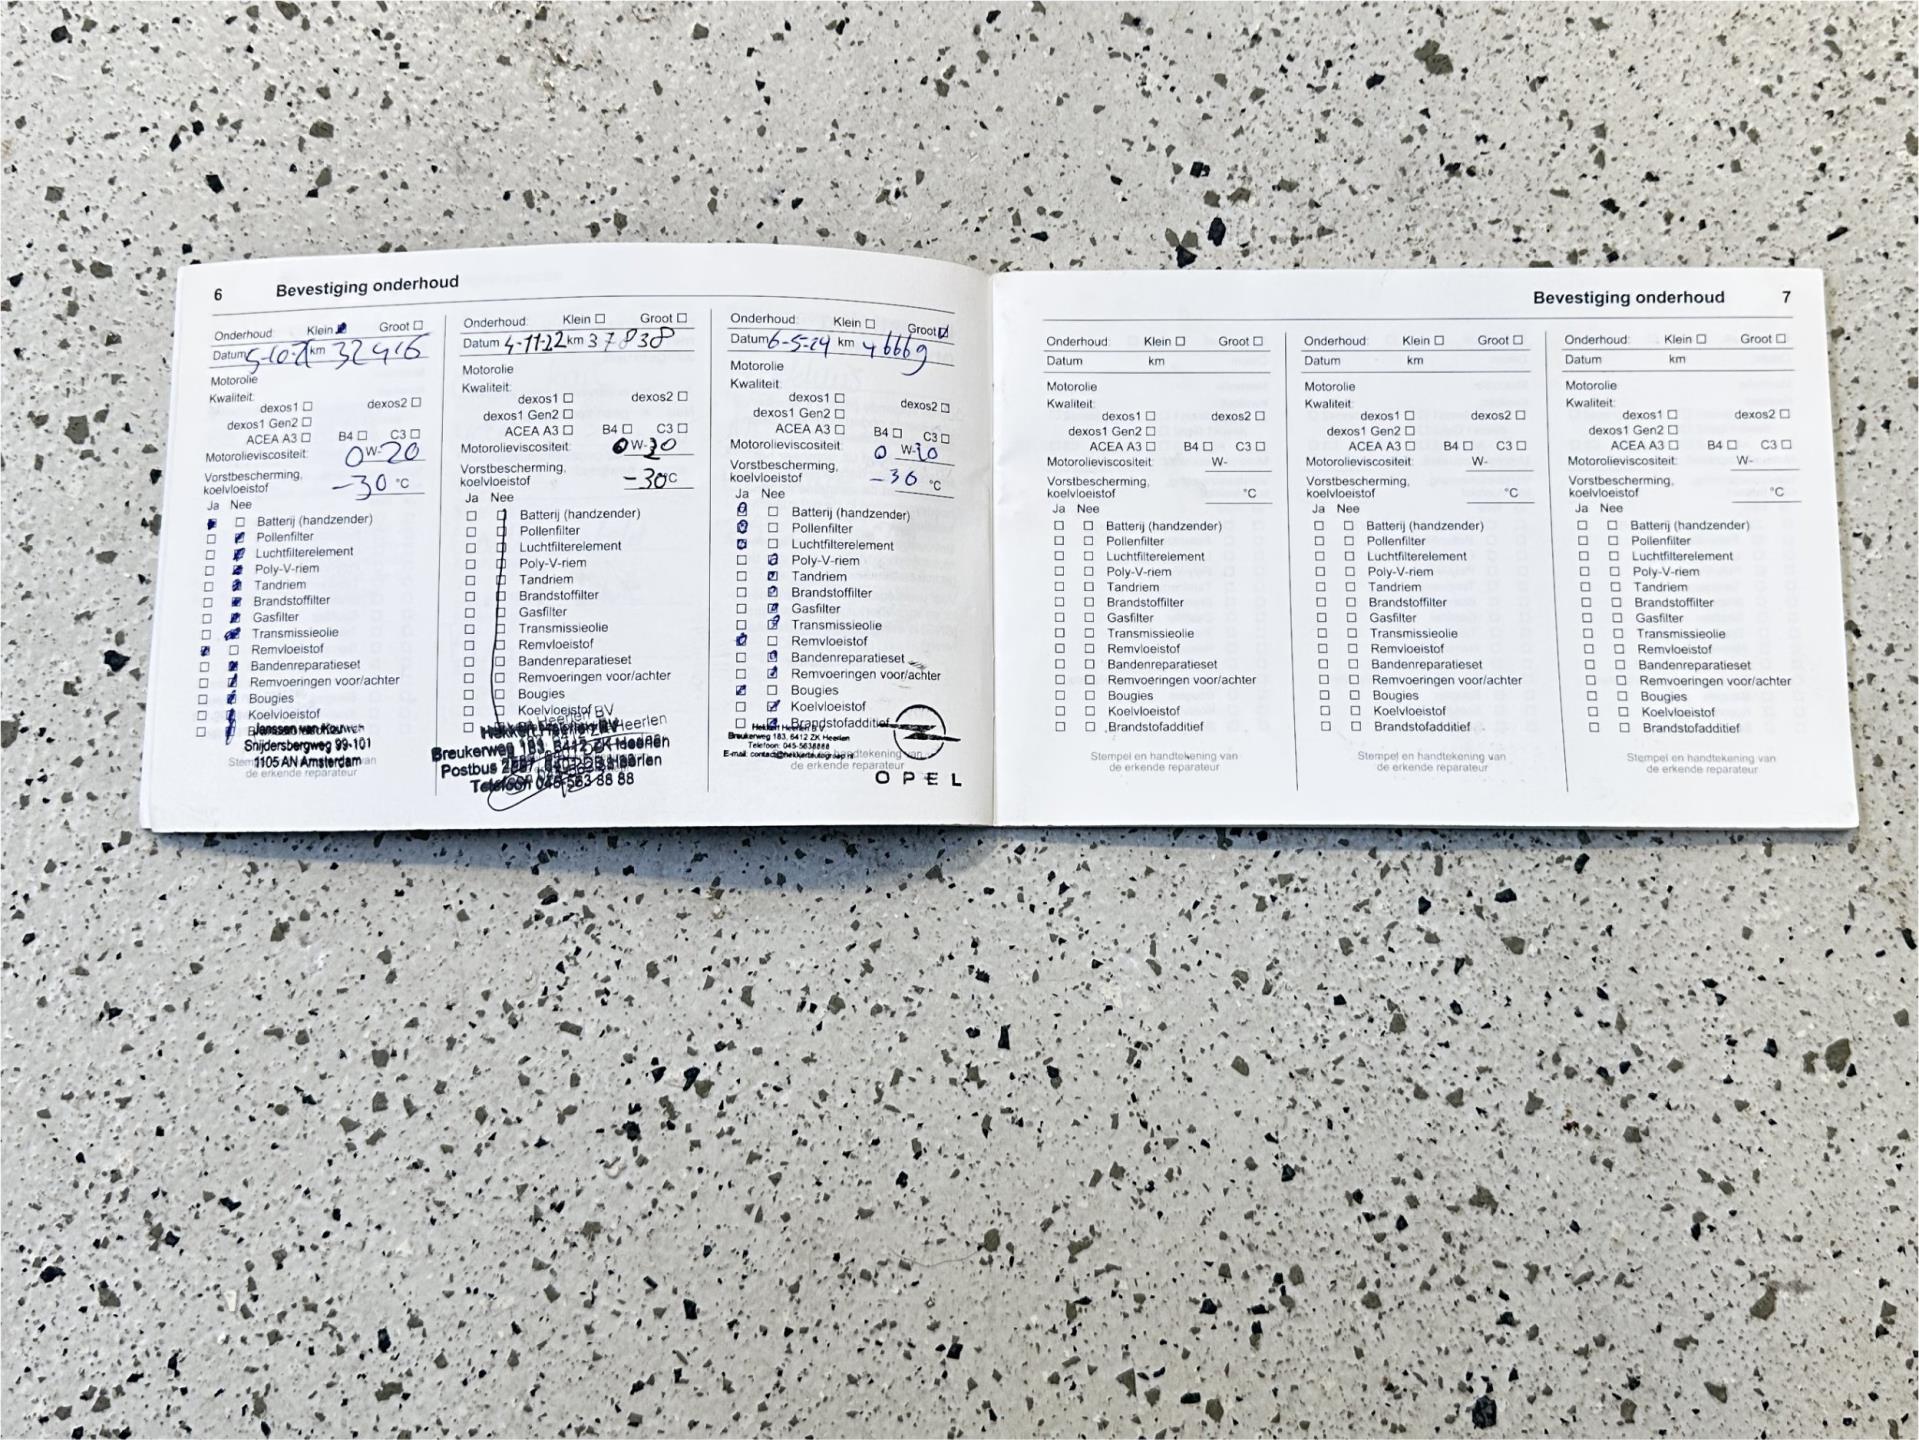 6 Bevestiging onderhoud
Onderhoud: Klein Groot
Datum 5-10-21 km 32416
Motorolie
Kwaliteit:
dexos1 dexos2
dexos1 Gen2
ACEA A3 B4 C3
Motorolieviscositeit: 0 W- 20
Vorstbescherming,
koelvloeistof -30 °C
Ja Nee
Batterij (handzender)
Pollenfilter
Luchtfilterelement
Poly-V-riem
Tandriem
Brandstoffilter
Gasfilter
Transmissieolie
Remvloeistof
Bandenreparatieset
Remvoeringen voor/achter
Bougies
Koelvloeistof
Janssen van Kouwen
Snijdersbergweg 99-101
1105 AN Amsterdam
de erkende reparateur
Onderhoud: Klein Groot
Datum 4-11-22 km 37838
Motorolie
Kwaliteit:
dexos1 dexos2
dexos1 Gen2
ACEA A3 B4 C3
Motorolieviscositeit: 0 W- 20
Vorstbescherming,
koelvloeistof -30 °C
Ja Nee
Batterij (handzender)
Pollenfilter
Luchtfilterelement
Poly-V-riem
Tandriem
Brandstoffilter
Gasfilter
Transmissieolie
Remvloeistof
Bandenreparatieset
Remvoeringen voor/achter
Bougies
Koelvloeistof
Hekkert Heerlen BV
Breukerweg 183, 6412 ZK Heerlen
Postbus Heerlen
Telefoon 045-563 88 88
Onderhoud: Klein Groot
Datum 6-5-24 km 46669
Motorolie
Kwaliteit:
dexos1 dexos2
dexos1 Gen2
ACEA A3 B4 C3
Motorolieviscositeit: 0 W-
Vorstbescherming,
koelvloeistof -36 °C
Ja Nee
Batterij (handzender)
Pollenfilter
Luchtfilterelement
Poly-V-riem
Tandriem
Brandstoffilter
Gasfilter
Transmissieolie
Remvloeistof
Bandenreparatieset
Remvoeringen voor/achter
Bougies
Koelvloeistof
Brandstofadditief
Hekkert Heerlen B.V.
Breukerweg 183, 6412 ZK Heerlen
Telefoon: 045-5638888
E-mail: contact@hekkertautogroep.nl
de erkende reparateur
OPEL
Bevestiging onderhoud 7
Onderhoud: Klein Groot
Datum km
Motorolie
Kwaliteit:
dexos1 dexos2
dexos1 Gen2
ACEA A3 B4 C3
Motorolieviscositeit: W-
Vorstbescherming,
koelvloeistof °C
Ja Nee
Batterij (handzender)
Pollenfilter
Luchtfilterelement
Poly-V-riem
Tandriem
Brandstoffilter
Gasfilter
Transmissieolie
Remvloeistof
Bandenreparatieset
Remvoeringen voor/achter
Bougies
Koelvloeistof
Brandstofadditief
Stempel en handtekening van
de erkende reparateur
Onderhoud: Klein Groot
Datum km
Motorolie
Kwaliteit:
dexos1 dexos2
dexos1 Gen2
ACEA A3 B4 C3
Motorolieviscositeit: W-
Vorstbescherming,
koelvloeistof °C
Ja Nee
Batterij (handzender)
Pollenfilter
Luchtfilterelement
Poly-V-riem
Tandriem
Brandstoffilter
Gasfilter
Transmissieolie
Remvloeistof
Bandenreparatieset
Remvoeringen voor/achter
Bougies
Koelvloeistof
Brandstofadditief
Stempel en handtekening van
de erkende reparateur
Onderhoud: Klein Groot
Datum km
Motorolie
Kwaliteit:
dexos1 dexos2
dexos1 Gen2
ACEA A3 B4 C3
Motorolieviscositeit: W-
Vorstbescherming,
koelvloeistof °C
Ja Nee
Batterij (handzender)
Pollenfilter
Luchtfilterelement
Poly-V-riem
Tandriem
Brandstoffilter
Gasfilter
Transmissieolie
Remvloeistof
Bandenreparatieset
Remvoeringen voor/achter
Bougies
Koelvloeistof
Brandstofadditief
Stempel en handtekening van
de erkende reparateur